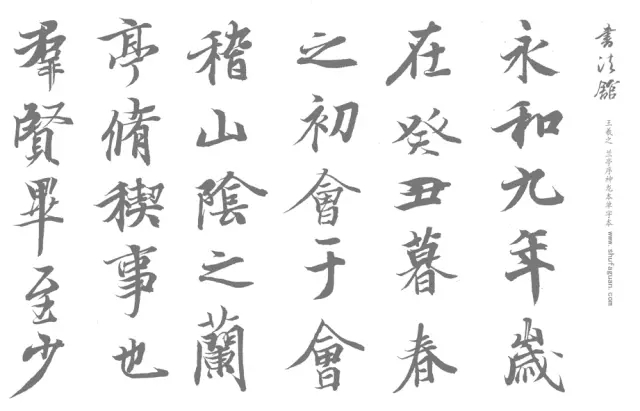 書法館
王羲之 兰亭序神龙本单字本 www.shufaguan.com
永和九年歲
在癸丑暮春
之初會于會
稽山陰之蘭
亭脩稧事也
羣賢畢至少